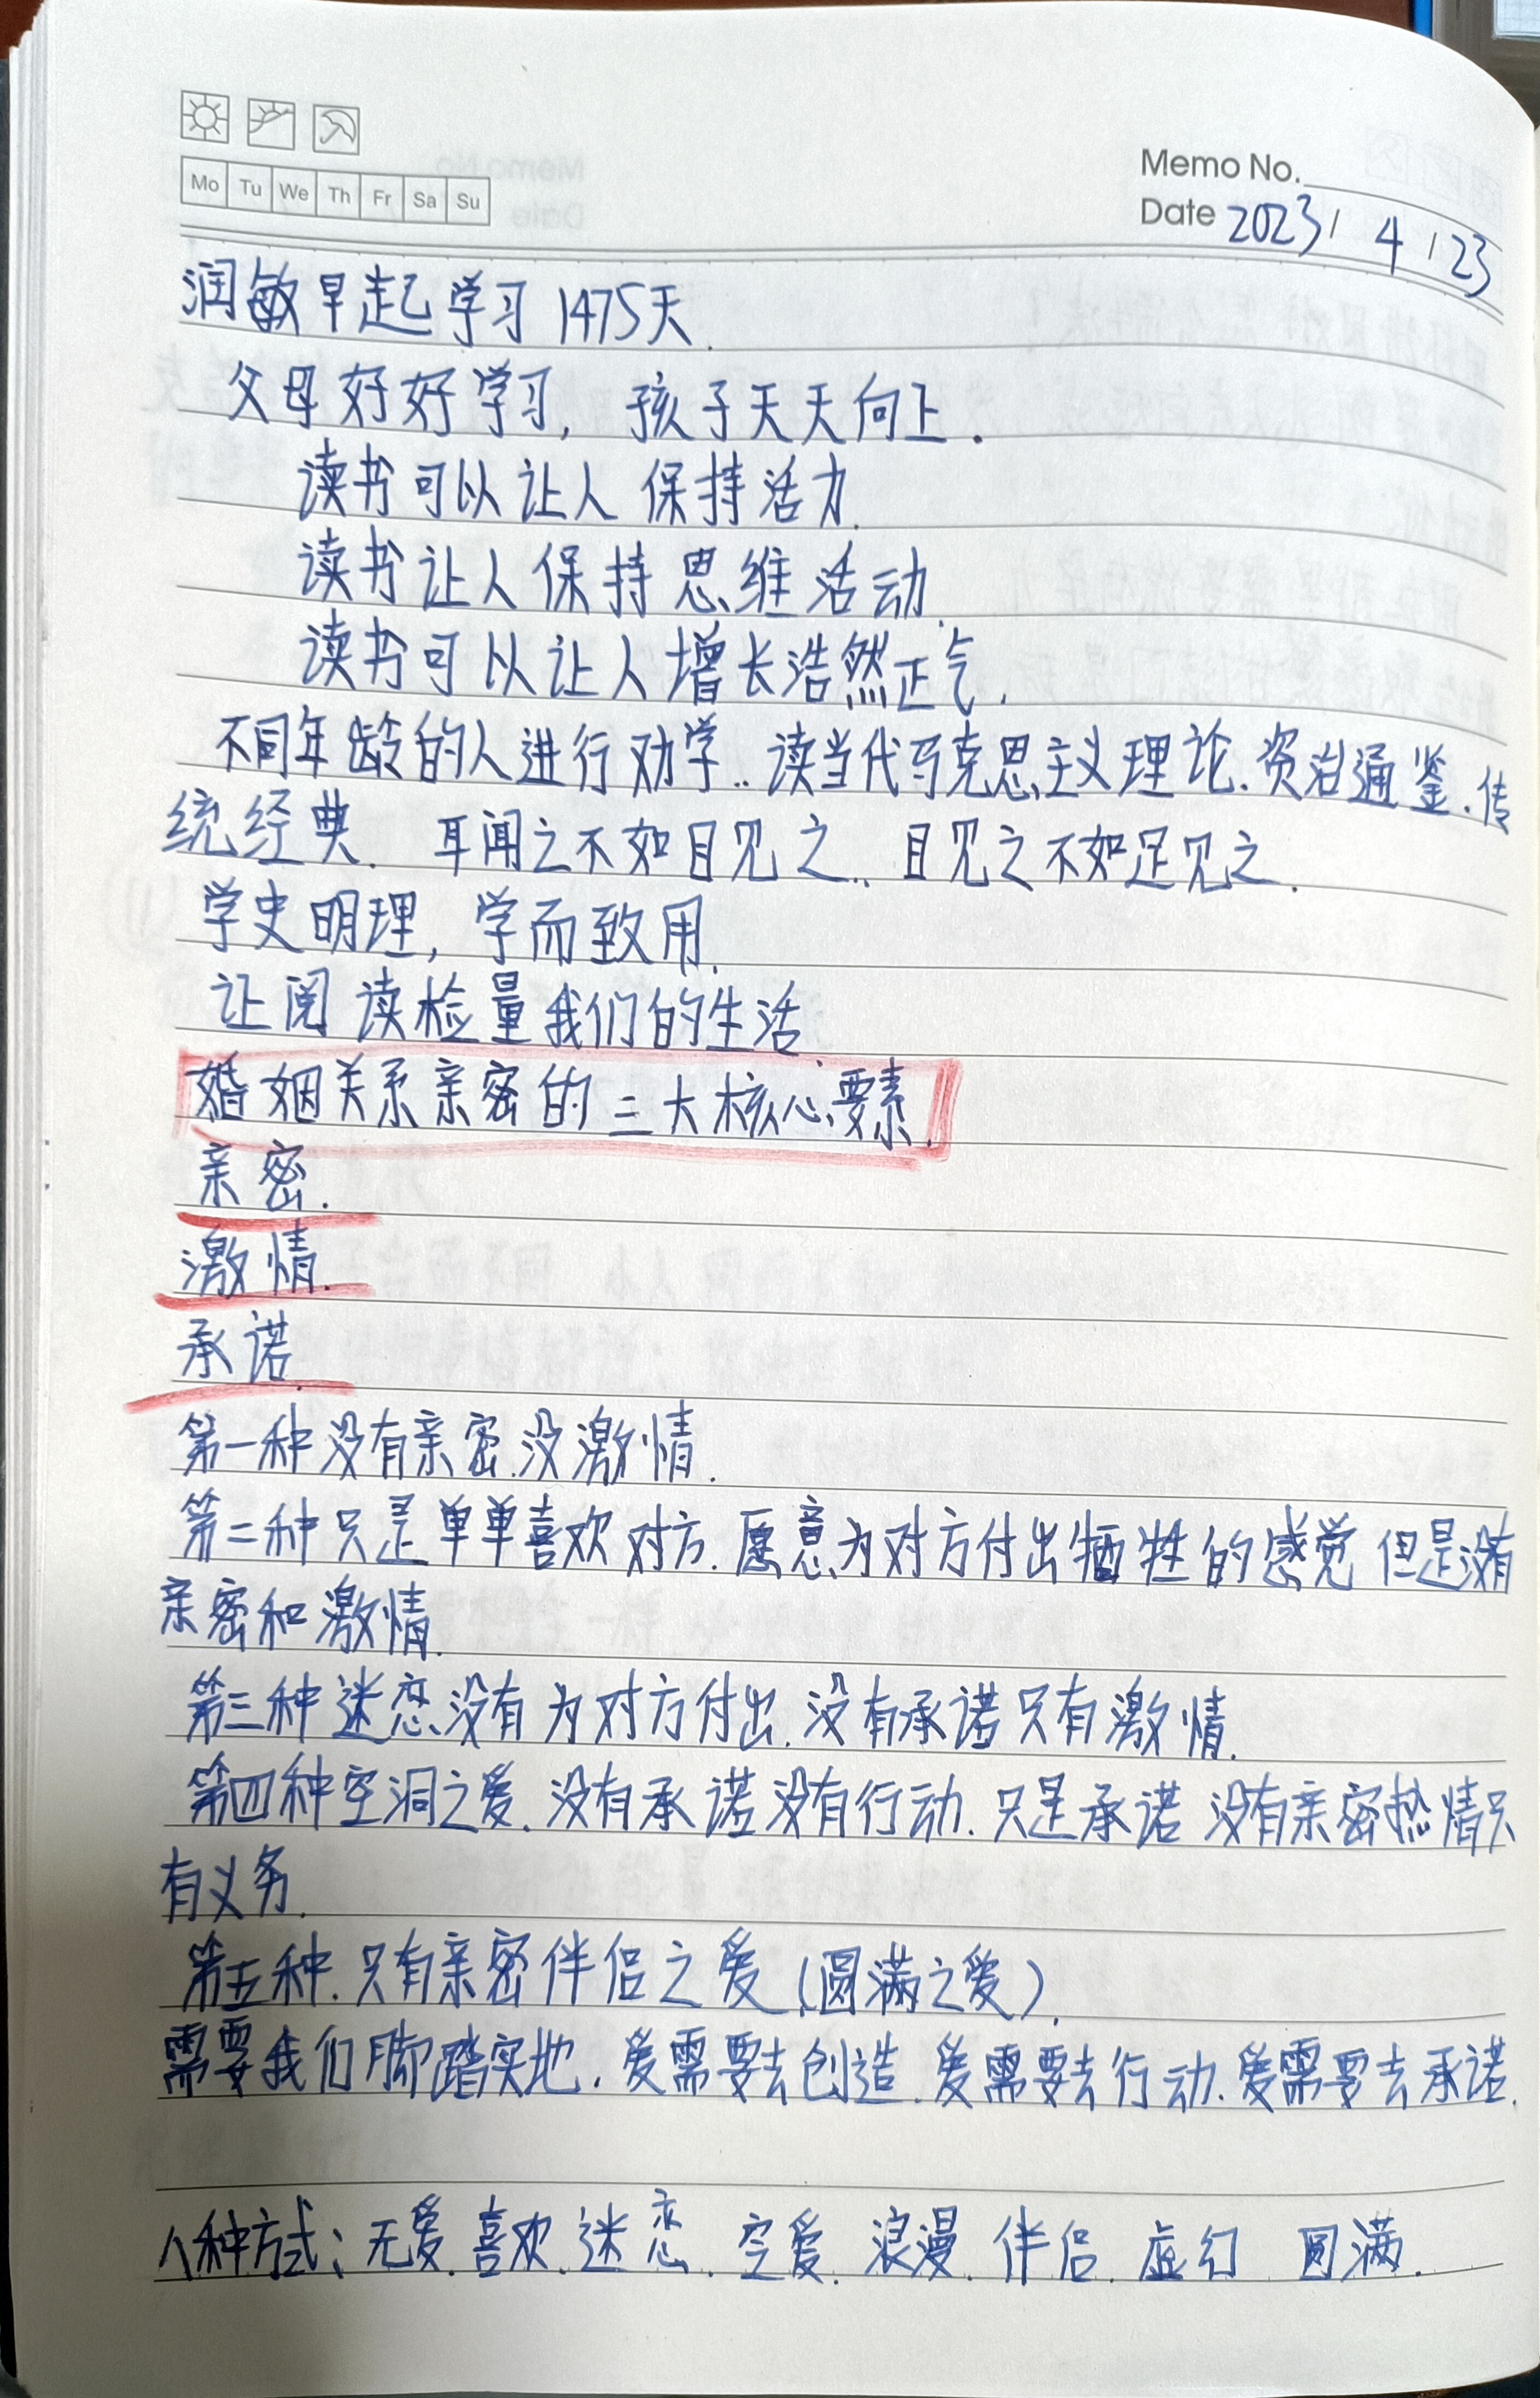 Mo Tu We Th Fr Sa Su
Memo No.
Date 2023/ 4 / 23
润敏早起学习 1475天.
父母好好学习, 孩子天天向上.
读书可以让人保持活力.
读书让人保持思维活动.
读书可以让人增长浩然正气.
不同年龄的人进行劝学..读当代马克思主义理论.资治通鉴.传
统经典. 耳闻之不如目见之.. 目见之不如足见之.
学史明理, 学而致用.
让阅读检量我们的生活.
婚姻关系亲密的三大核心要素.
亲密.
激情.
承诺.
第一种没有亲密.没激情.
第二种只是单单喜欢对方.愿意为对方付出牺牲的感觉 但是没有
亲密和激情.
第三种迷恋没有为对方付出.没有承诺只有激情.
第四种空洞之爱.没有承诺没有行动.只是承诺 没有亲密热情只
有义务.
第五种.只有亲密伴侣之爱(圆满之爱).
需要我们脚踏实地.爱需要去创造.爱需要去行动.爱需要去承诺.
八种方式: 无爱.喜欢.迷恋.空爱.浪漫.伴侣.虚幻 圆满.